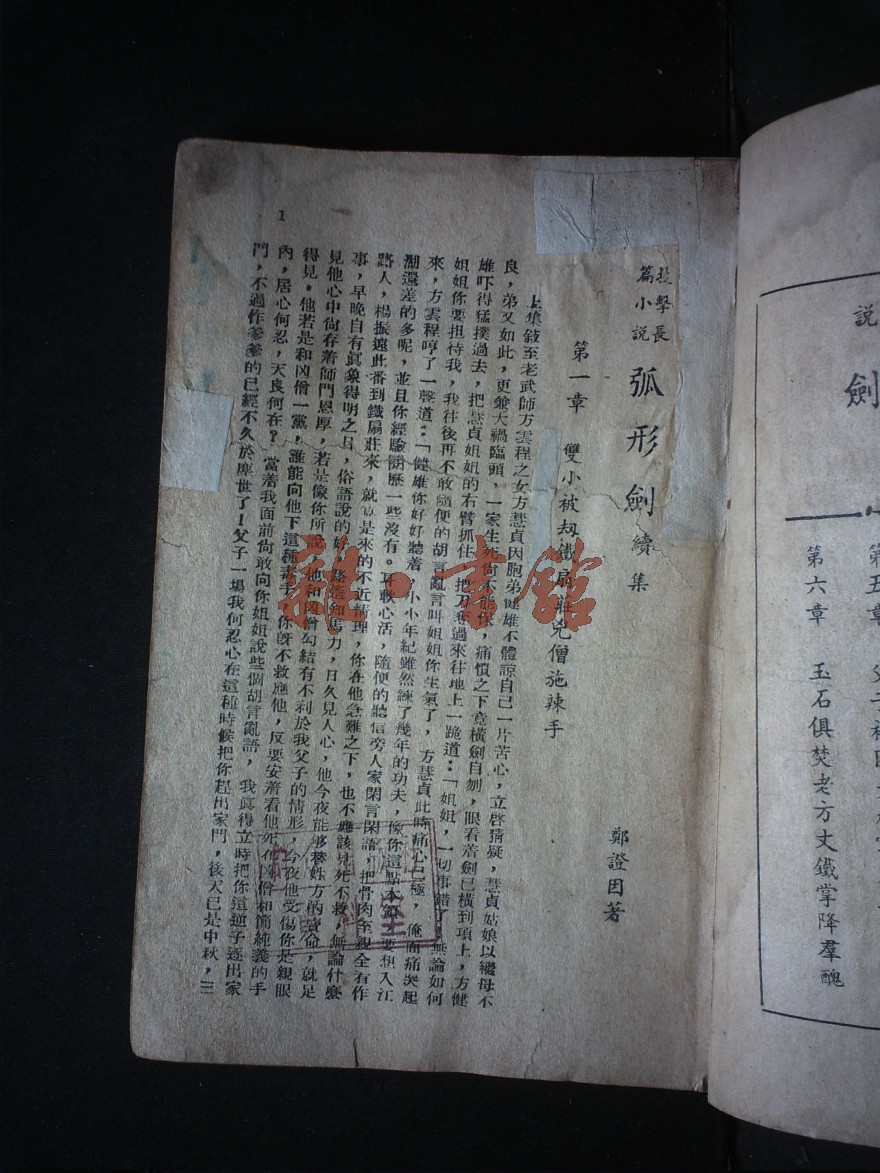 說
劍
第五章
第六章　玉石俱焚老方丈鐵掌降羣醜
技擊長
篇小說
弧形劍續集
鄭證因著
第一章　雙小被刼鐵扇莊兇僧施辣手
上集敍至老武師方雲程之女方慧貞因胞弟健雄不體諒自己一片苦心，立啓猜疑，慧貞姑娘以繼母不
良，弟又如此，更兼大禍臨頭，一家生死尙不能保，痛憤之下竟橫劍自刎，眼看着劍已橫到項上，方健
雄吓得猛撲過去，把慧貞姐姐的右臂抓住，把刀奪過來往地上一跪道：「姐姐，一切事錯了，無論如何
姐姐你要担待我，我往後再不敢隨便的胡言亂言叫姐姐你生氣了，方慧貞此時痛心已極，俺面痛哭起
來，方雲程哼了一聲道：「健雄你好好聽着，小小年紀雖然練了幾年的功夫，像你這點本領要想入江
湖還差的多呢，並且你經驗閱歷一些沒有。耳軟心活，隨便的聽信旁人家閑言閑語，把骨肉至親全看作
路人，楊振遠此番到鐵扇莊來，就算是來的不近情理，你在他急難之下，也不應該見死不救，無論什麼
事，早晚自有眞象得明之日，俗語說的好，路遙知馬力，日久見人心，他今夜能够替姓方的賣命，就足
見他心中尙存着師門恩厚，若是像你所說，他和凶僧勾結有不利於我父子的情形，今夜他受傷你是親眼
得見。他若是和凶僧一黨，誰能向他下這種毒手，你旣不救應他，反要安着看他死在凶僧和簡純義的手
內，居心何忍，天良何在？當着我面前尙敢向你姐姐說些個胡言亂語，我眞得立時把你這逆子逐出家
門，不過作爹爹的已經不久於塵世了！父子一場我何忍心在這種時候把你趕出家門，後天已是中秋，三
1
龍·書館